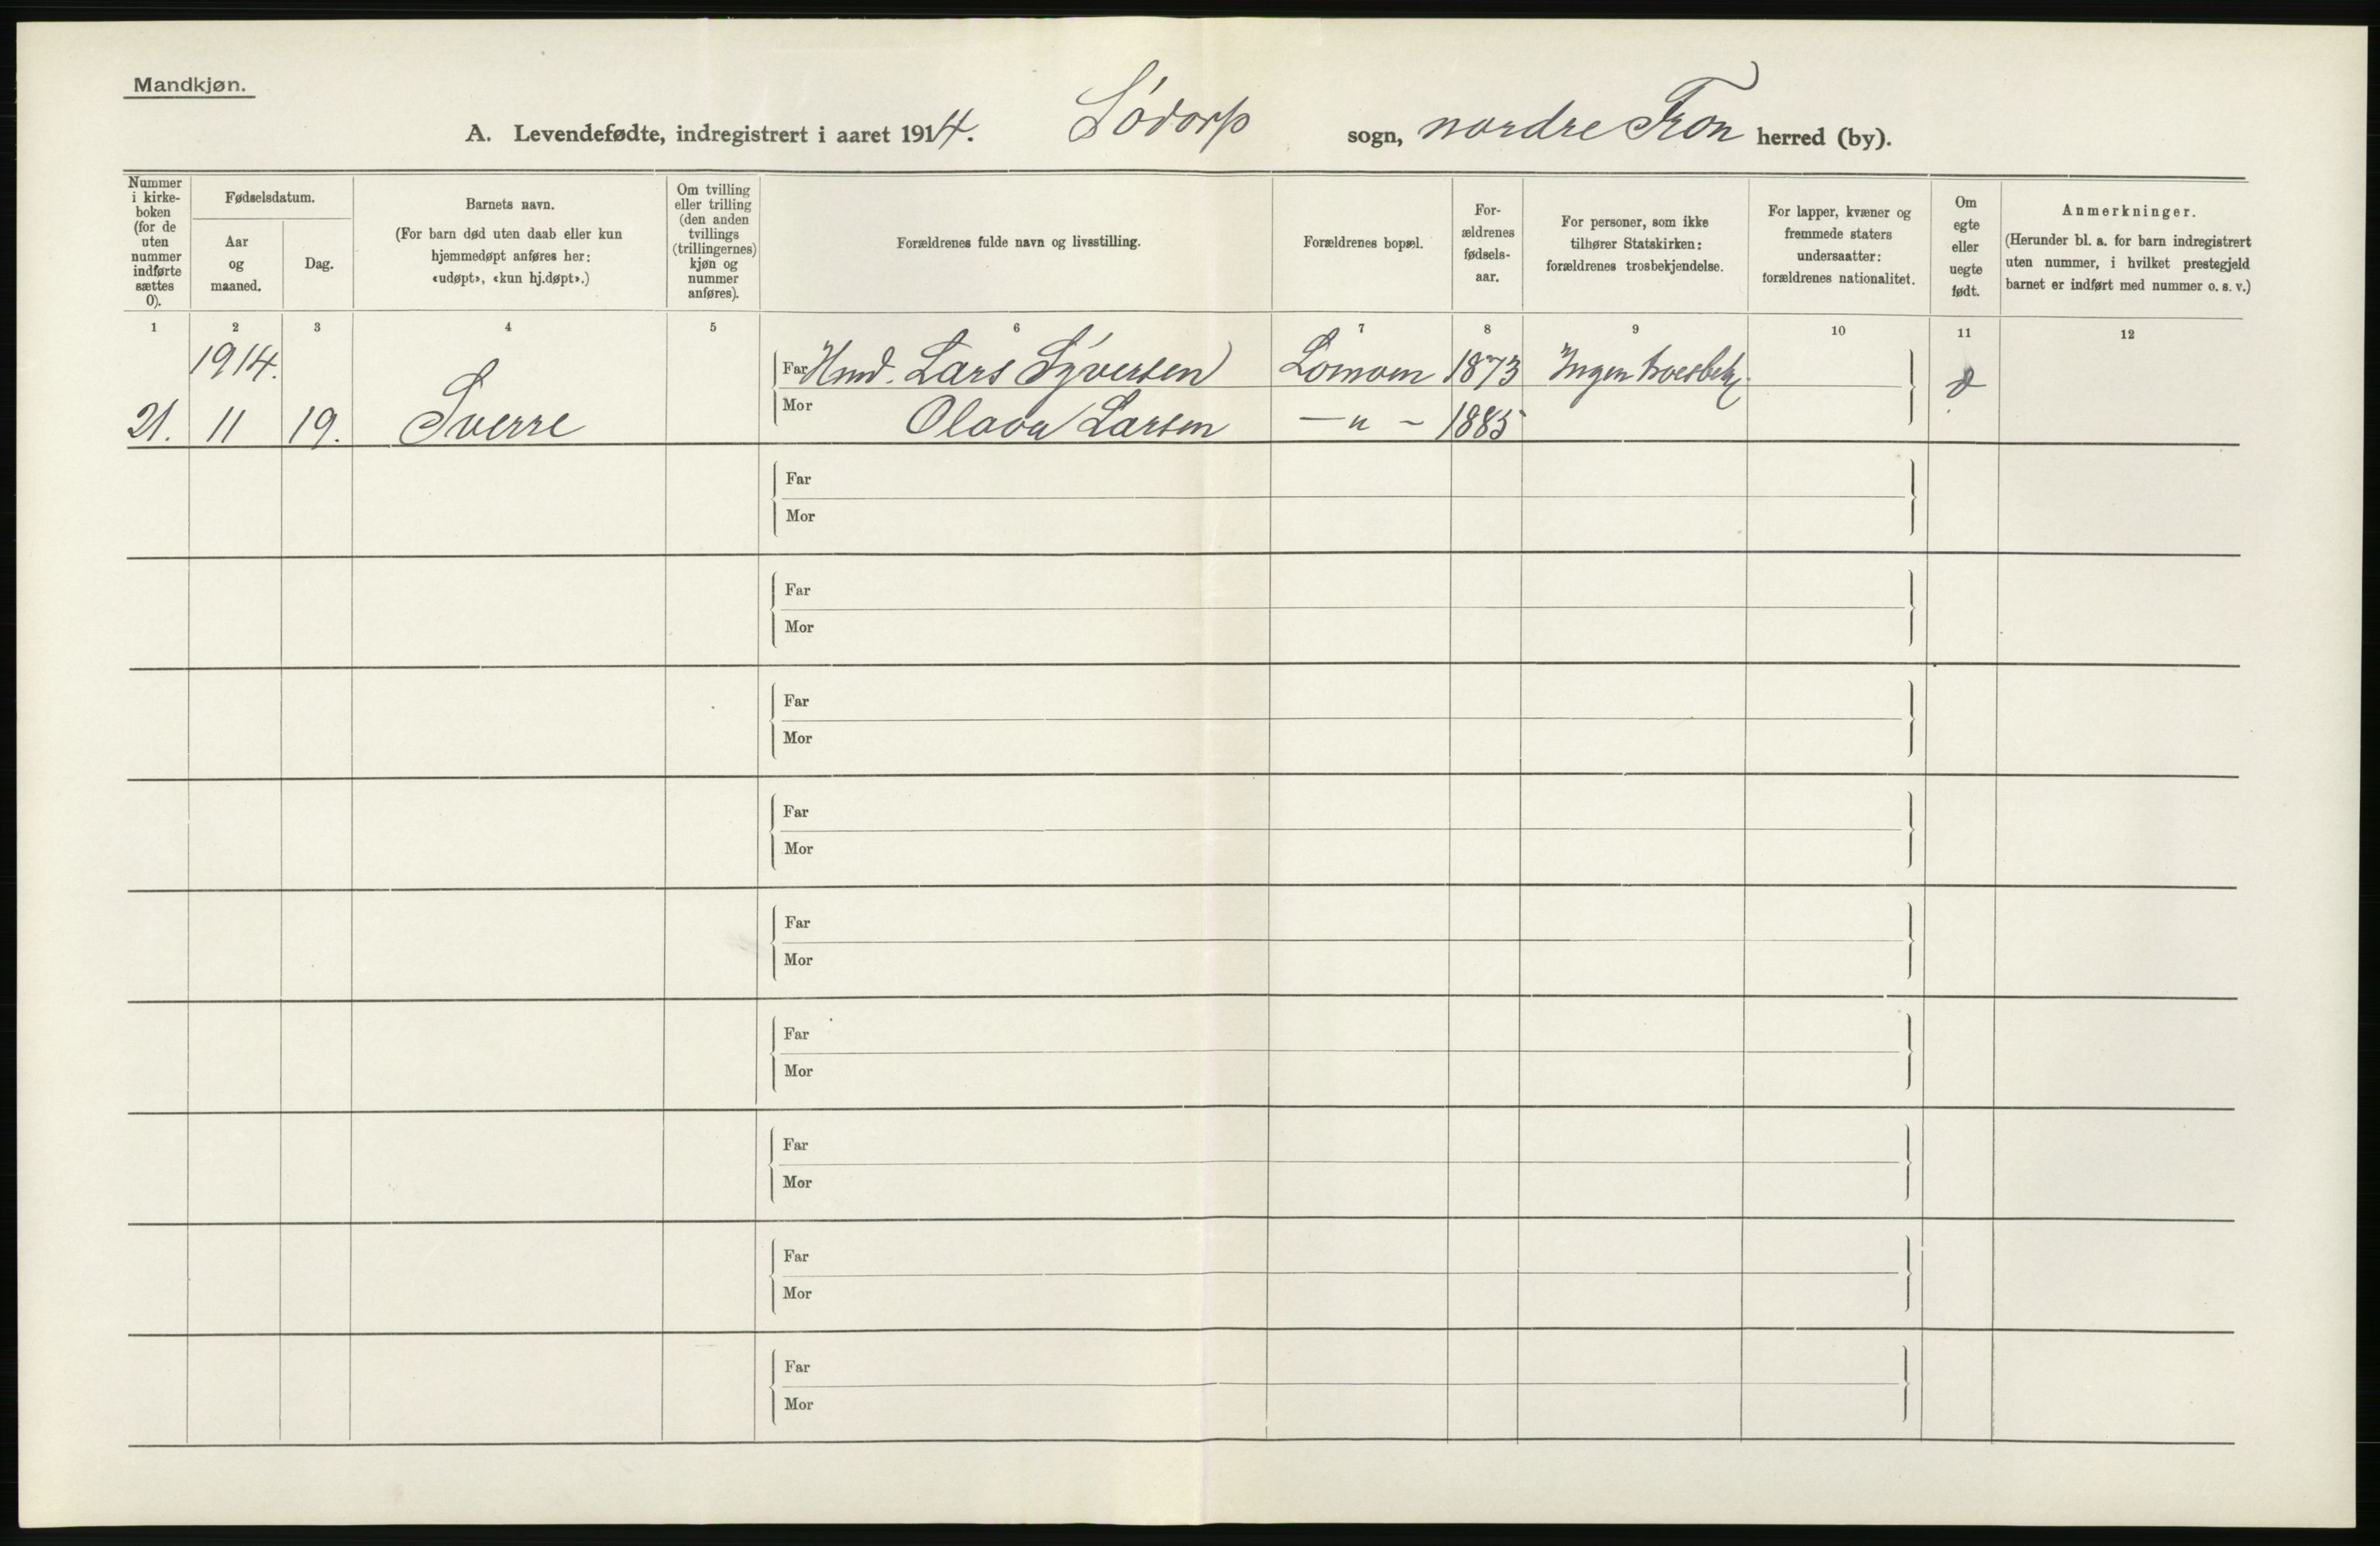 Mandkjøn.
A. Levendefødte, indregistrert i aaret 1914. Sødorp sogn, nordre Fron herred (by).
Nummer i kirke- boken (for de uten nummer indførte sættes 0).
Fødselsdatum.
Aar og maaned.
Dag.
Barnets navn.
(For barn død uten daab eller kun
hjemmedøpt anføres her:
«udøpt», «kun hj.døpt».)
Om tvilling
eller trilling
(den anden
tvillings
(trillingernes)
kjøn og
nummer
anføres).
Forældrenes fulde navn og livsstilling.
Forældrenes bopæl.
For-
ældrenes
fødsels-
aar.
For personer, som ikke
tilhører Statskirken:
forældrenes trosbekjendelse.
For lapper, kvæner og
fremmede staters
undersaatter:
forældrenes nationalitet.
Om
egte
eller
uegte
født.
Anmerkninger.
(Herunder bl. a. for barn indregistrert
uten nummer, i hvilket prestegjeld
barnet er indført med nummer o. s. v.)
1 2 3 4 5 6 7 8 9 10 11 12
1914. Far Hmd. Lars Syversen Lomoen 1873 Ingen trosbekj.
21. 11 19. Sverre Mor Olava Larsen — " — 1885
Far
Mor
Far
Mor
Far
Mor
Far
Mor
Far
Mor
Far
Mor
Far
Mor
Far
Mor
Far
Mor